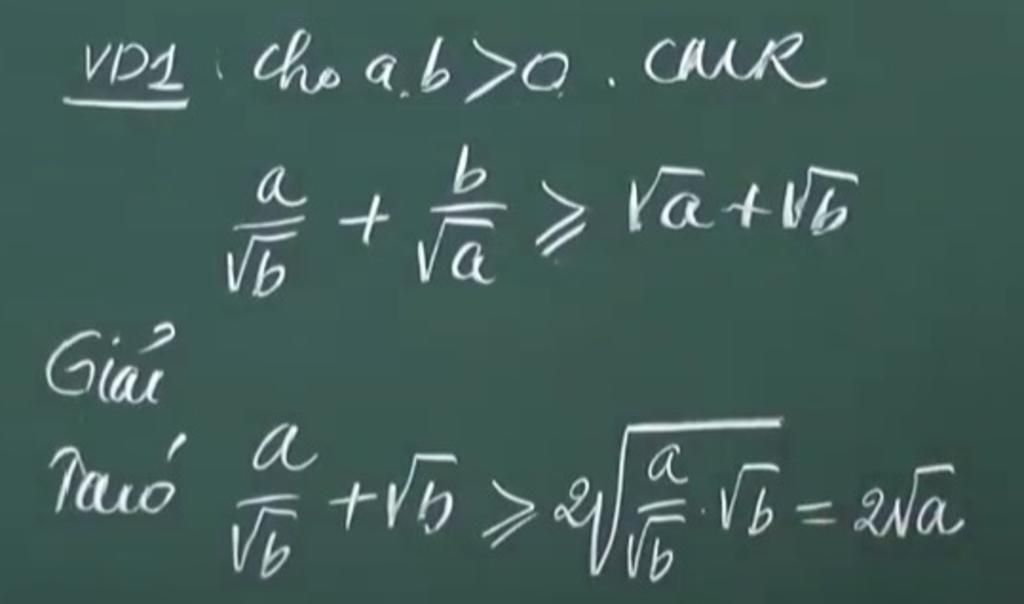 VD1 : Cho a,b > 0. CMR
a/√b + b/√a ≥ √a + √b
Giải
Ta có a/√b + √b ≥ 2√(a/√b · √b) = 2√a